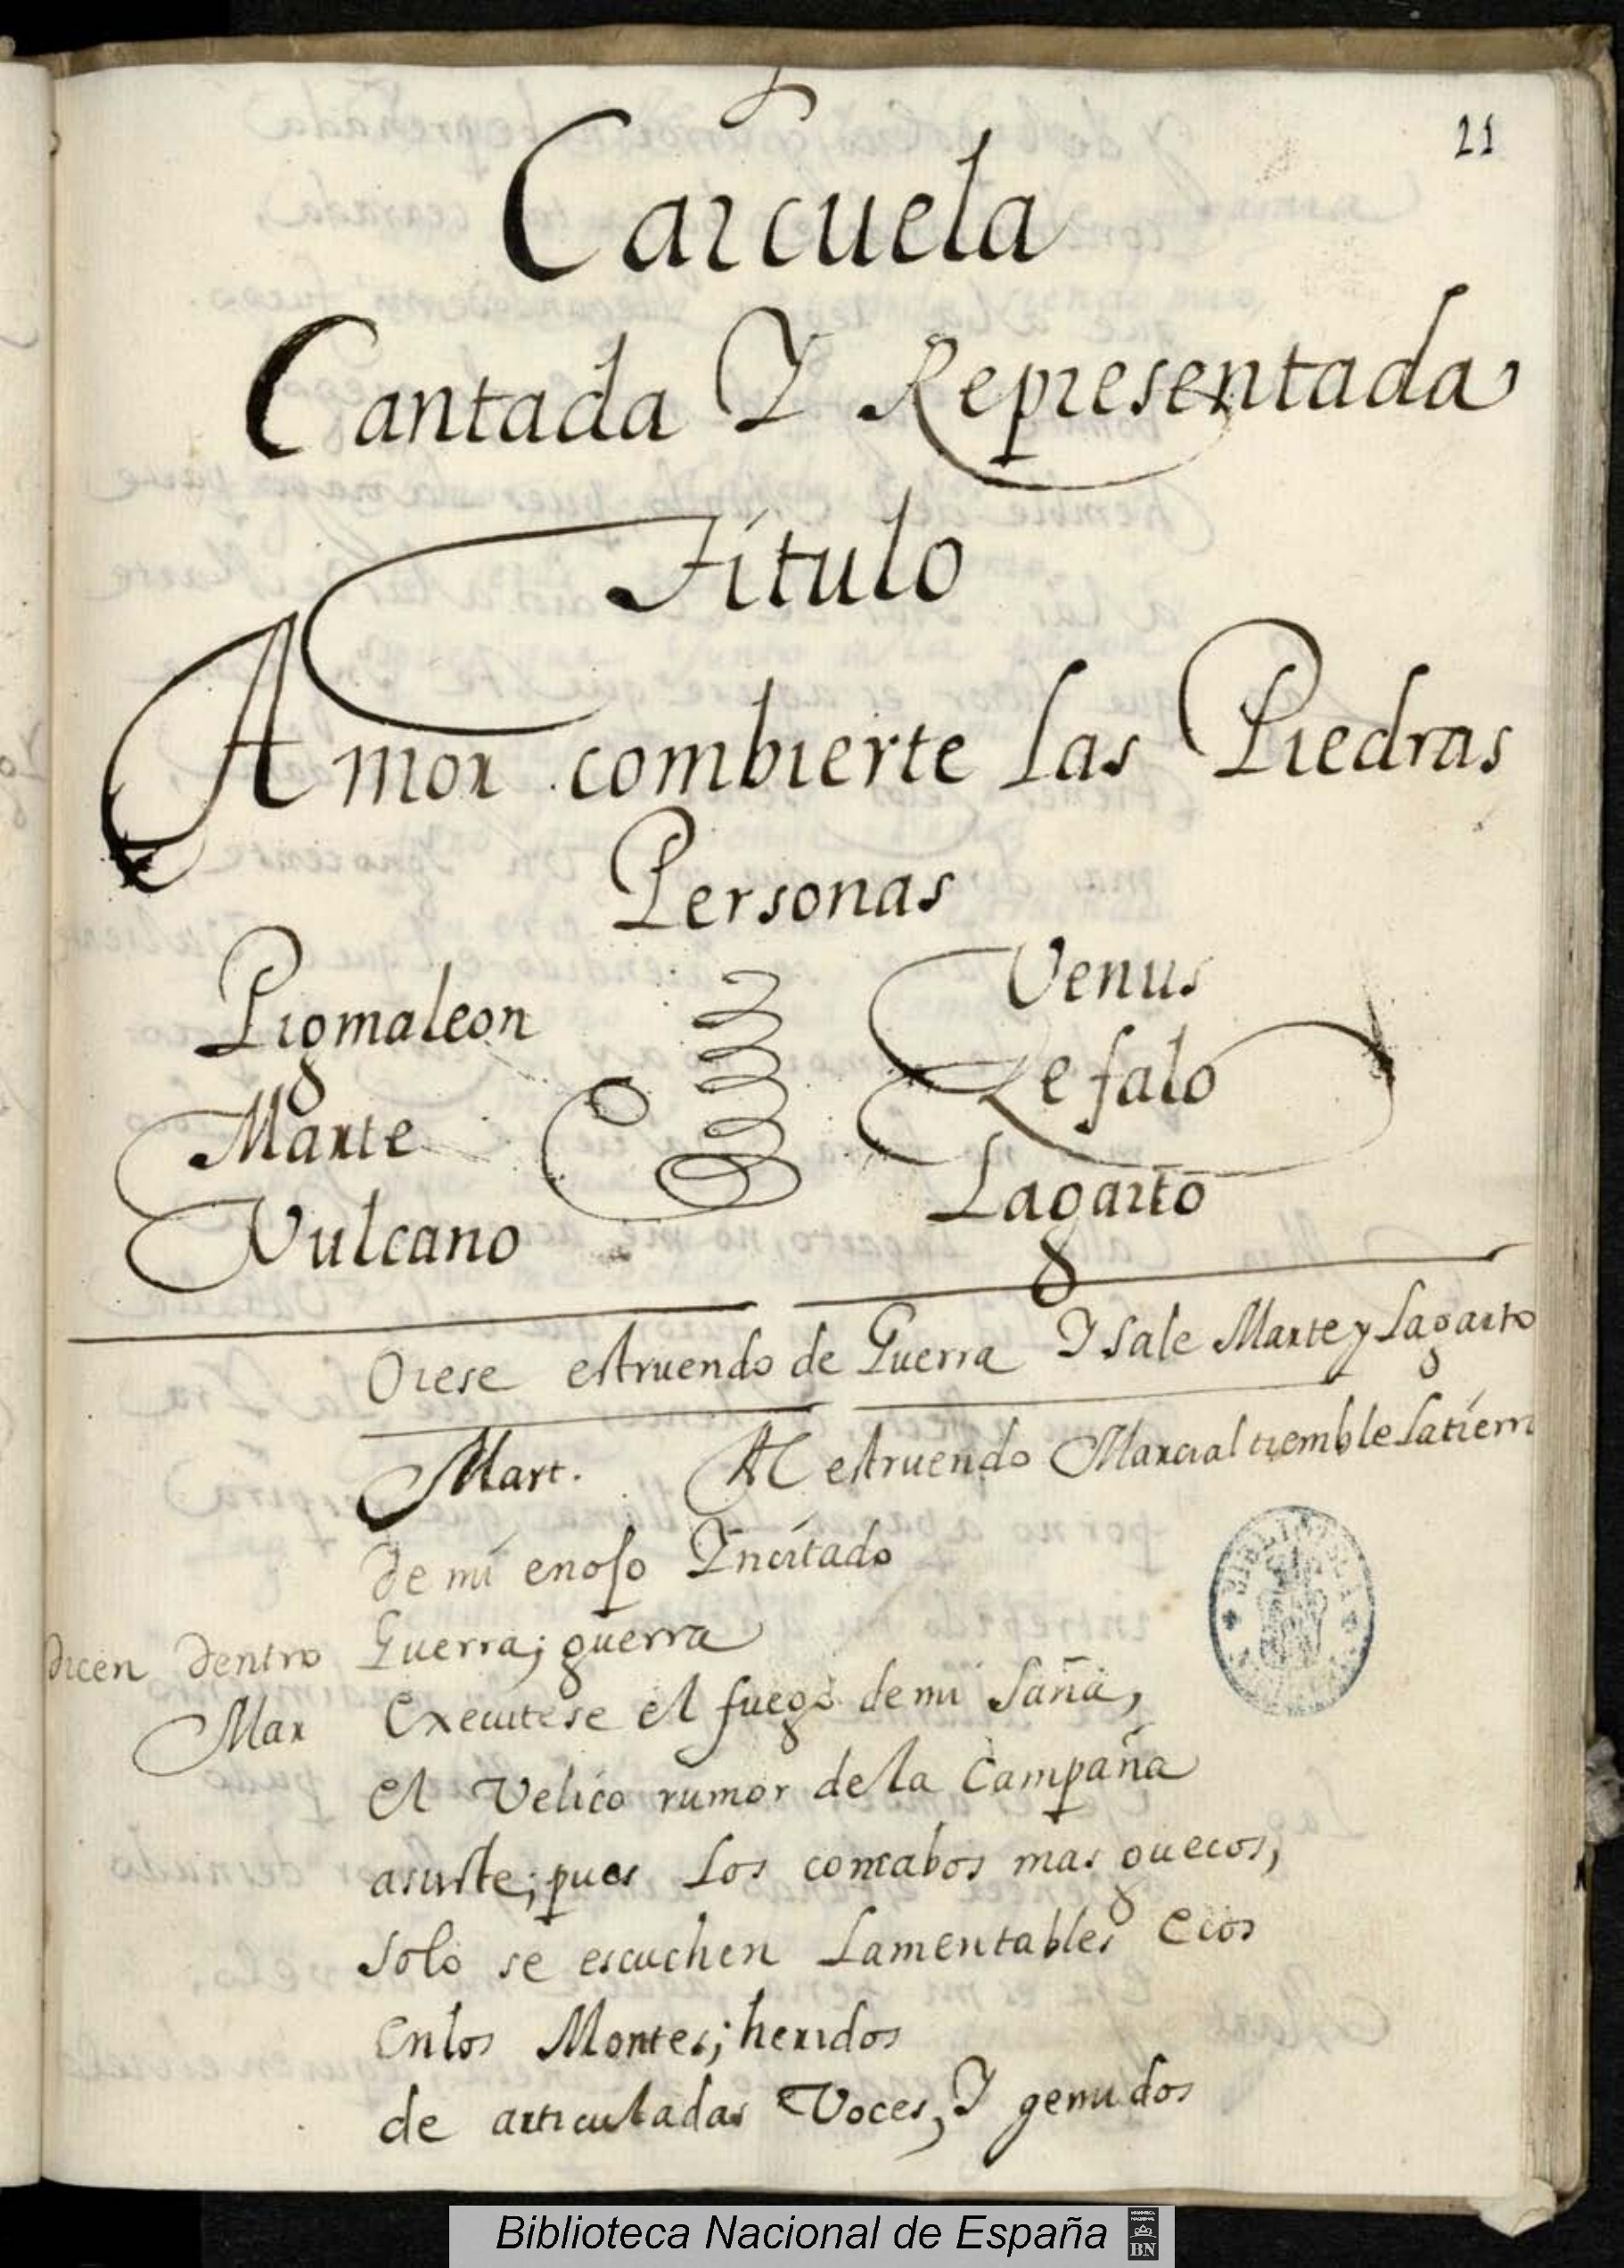 21
Carcuela
Cantada Y Representada
Título
Amor combierte las Piedras
Personas
Pigmaleon
Marte
Vulcano
Venus
Zefalo
Lagarto
Oiese estruendo de Guerra Y sale Marte y Lagarto
Mart. Al estruendo Marcial tiemble la tierra
de mi enojo Yncitado
dicen dentro Guerra; guerra
Mar Executese el fuego de mi saña,
el Velico rumor de la Campaña
asuste; pues los concabos mas guecos,
solo se escuchen lamentables ecos
en los Montes; heridos
de articuladas Voces, Y gemidos
BIBLIOTECA
Biblioteca Nacional de España
BN